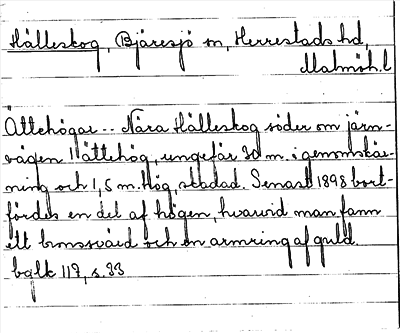 Hälleskog, Bjäresjö sn, Herrestads hd,
Malmöh.l
Ättehögar... Nära Hälleskog söder om järn-
vägen 1 ättehög, ungefär 30 m. i genomskär-
ning och 1,5 m. hög, skadad. Senast 1898 bort-
fördes en del af högen, hvarvid man fann
ett bronssvärd och en armring af guld.
balk 117, s. 33